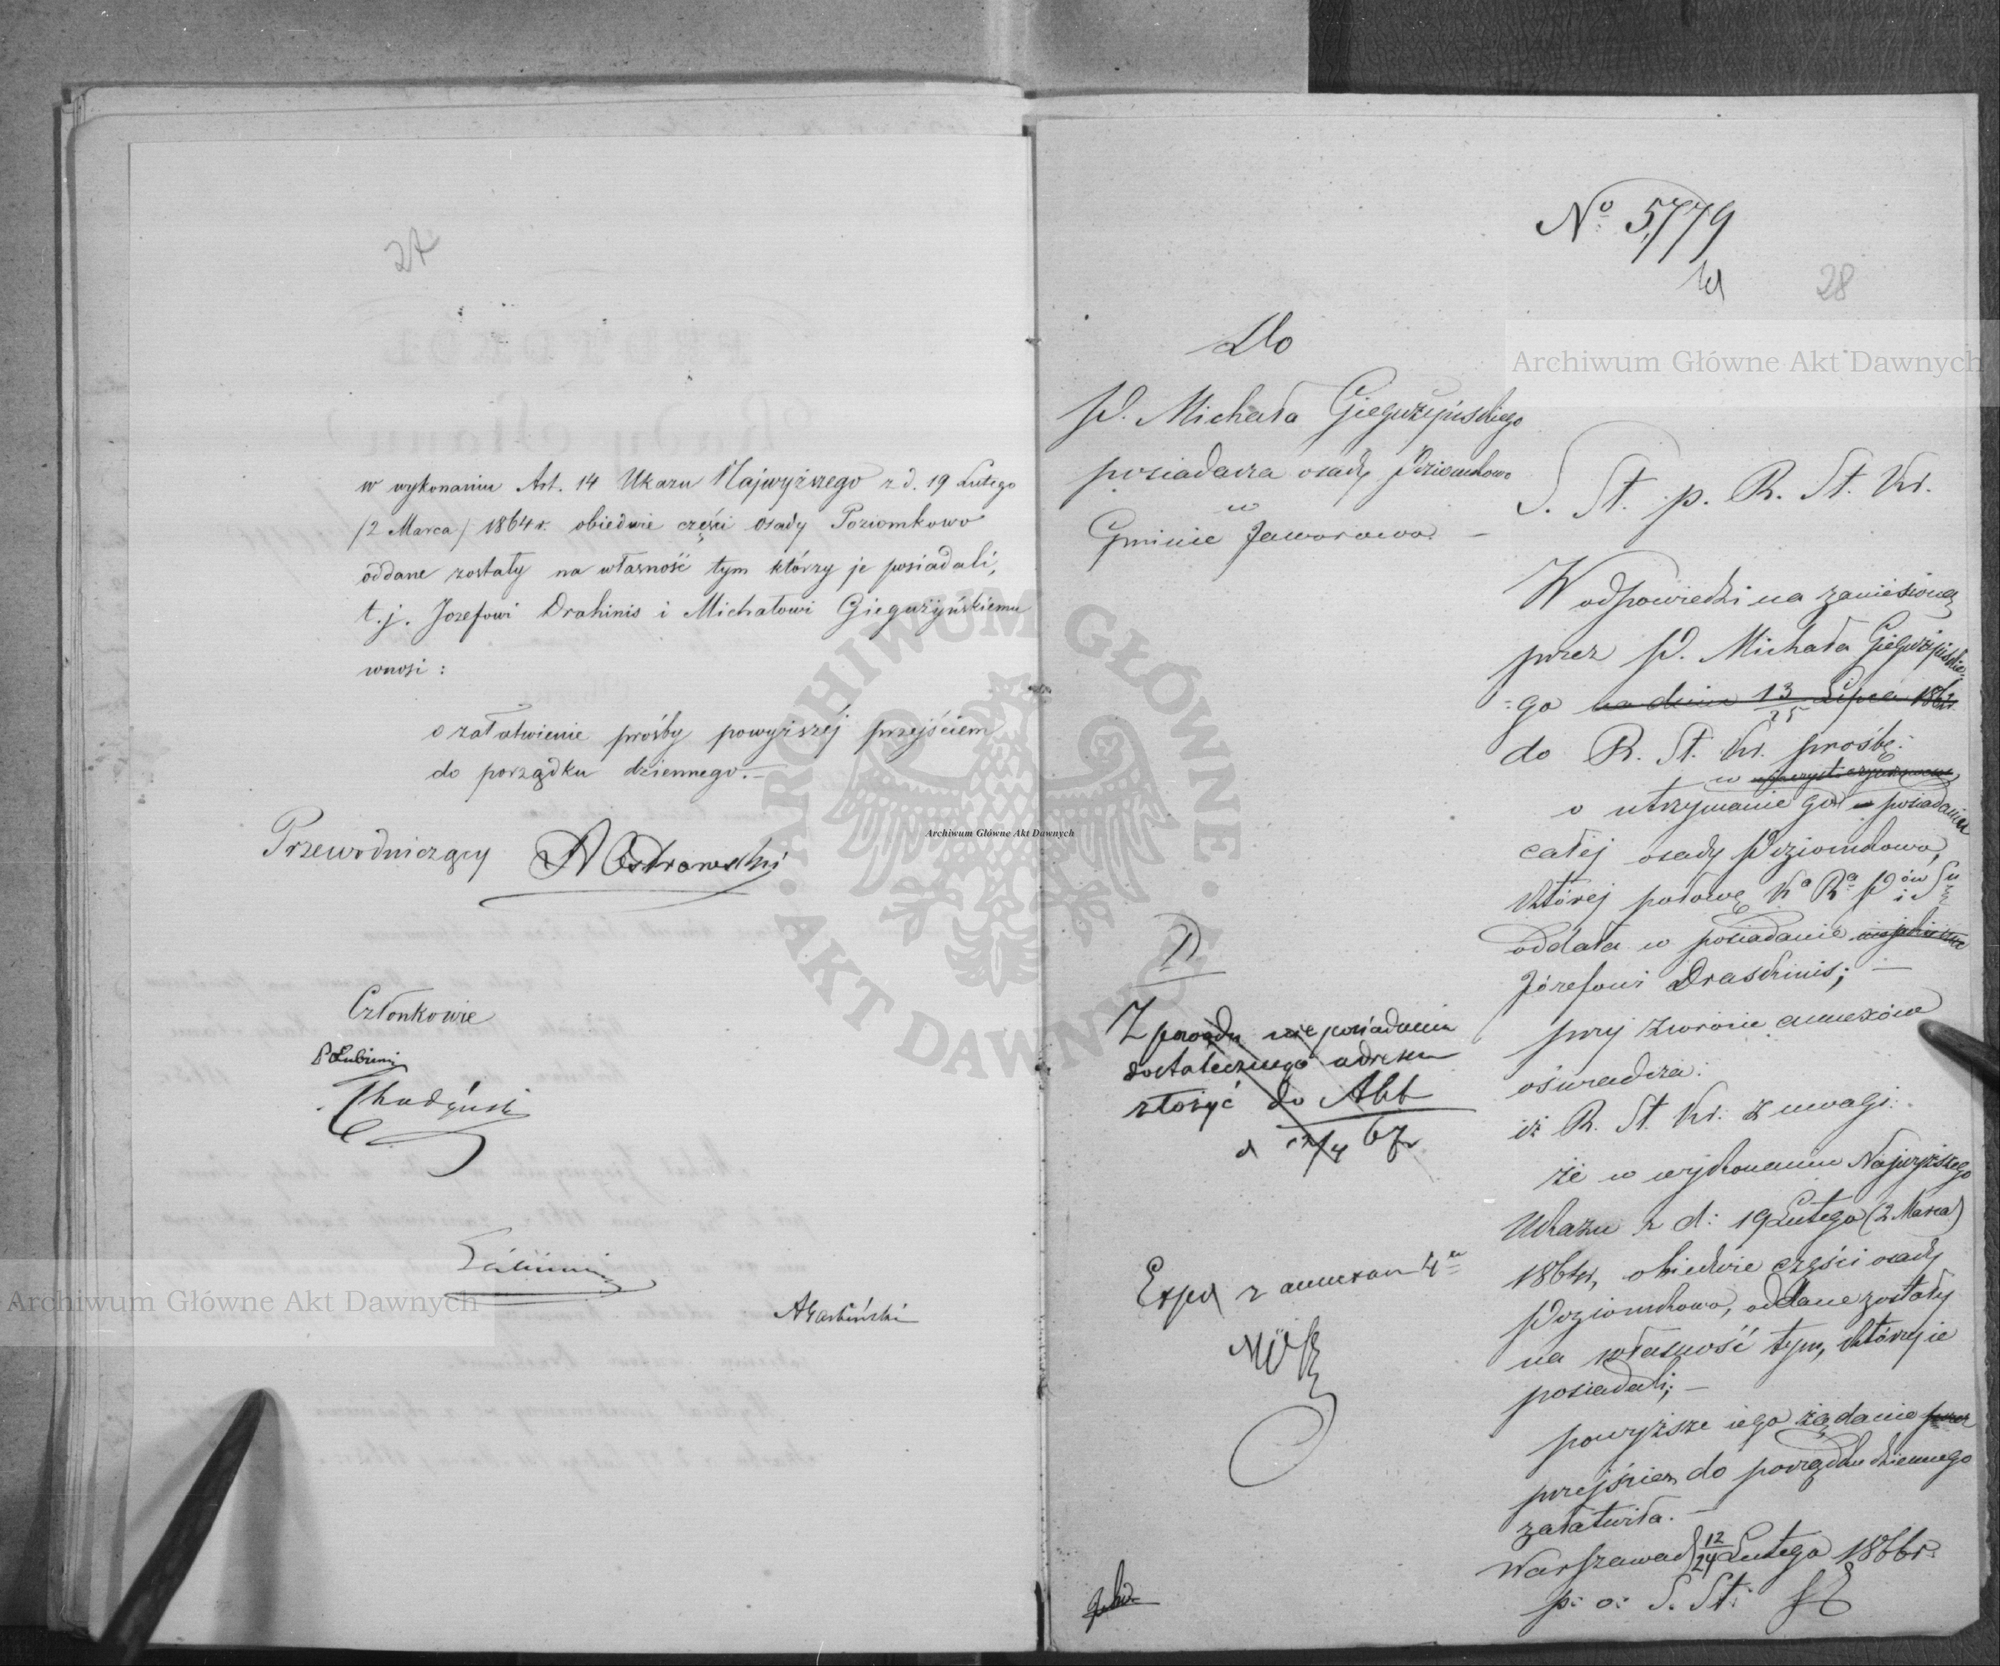 27
w wykonaniu Art. 14 Ukazu Najwyższego z d. 19 Lutego
/2 Marca/ 1864 r. obiedwie części osady Poziomkowo
oddane zostały na własność tym którzy je posiadali,
t.j. Jozefowi Drahinis i Michałowi Giegużyńskiemu
wnosi:
o załatwienie prośby powyższej przejściem
do porządku dziennego.—
Przewodniczący AOstrowski
Członkowie
PŁubieni
AGarbiński
No 5,779
28
Do
P. Michała Giegużyńskiego
posiadacza osady Poziomkowo
w
Gminie Jaworowo. —
S. St. p. R. St. Kr.
W odpowiedzi na zaniesioną
przez P. Michała Giegużyńskie-
-go na dniu 13/25 Lipca 1862 r.
do R. St. Kr. prośbę:
w
o utrzymanie go posiadaniu
całej osady Poziomkowo,
której połowę Ka Ra Pów i S
oddała w posiadanie
Józefowi Draskinis; —
przy zwrocie annexów
oświadcza:
iż R. St. Kr. z uwagi:
że w wykonaniu Najwyższego
Ukazu z d: 19 Lutego (2 Marca)
1864 r, obiedwie części osady
Poziomkowo, oddane zostały
na własność tym, którzy ie
posiadali; —
powyższe iego żądanie przez
przejściem do porządku dziennego
załatwiła. —
Warszawa d 12/24 Lutego 1866 r.
p: o: S. St:
D
Z powodu nie posiadania
dostatecznego adresu
złożyć do Akt
d 12/4 67 r
Exped z annexam 4
Archiwum Główne Akt Dawnych
Archiwum Główne Akt Dawnych
Archiwum Główne Akt Dawnych
ARCHIWUM GŁÓWNE AKT DAWNYCH